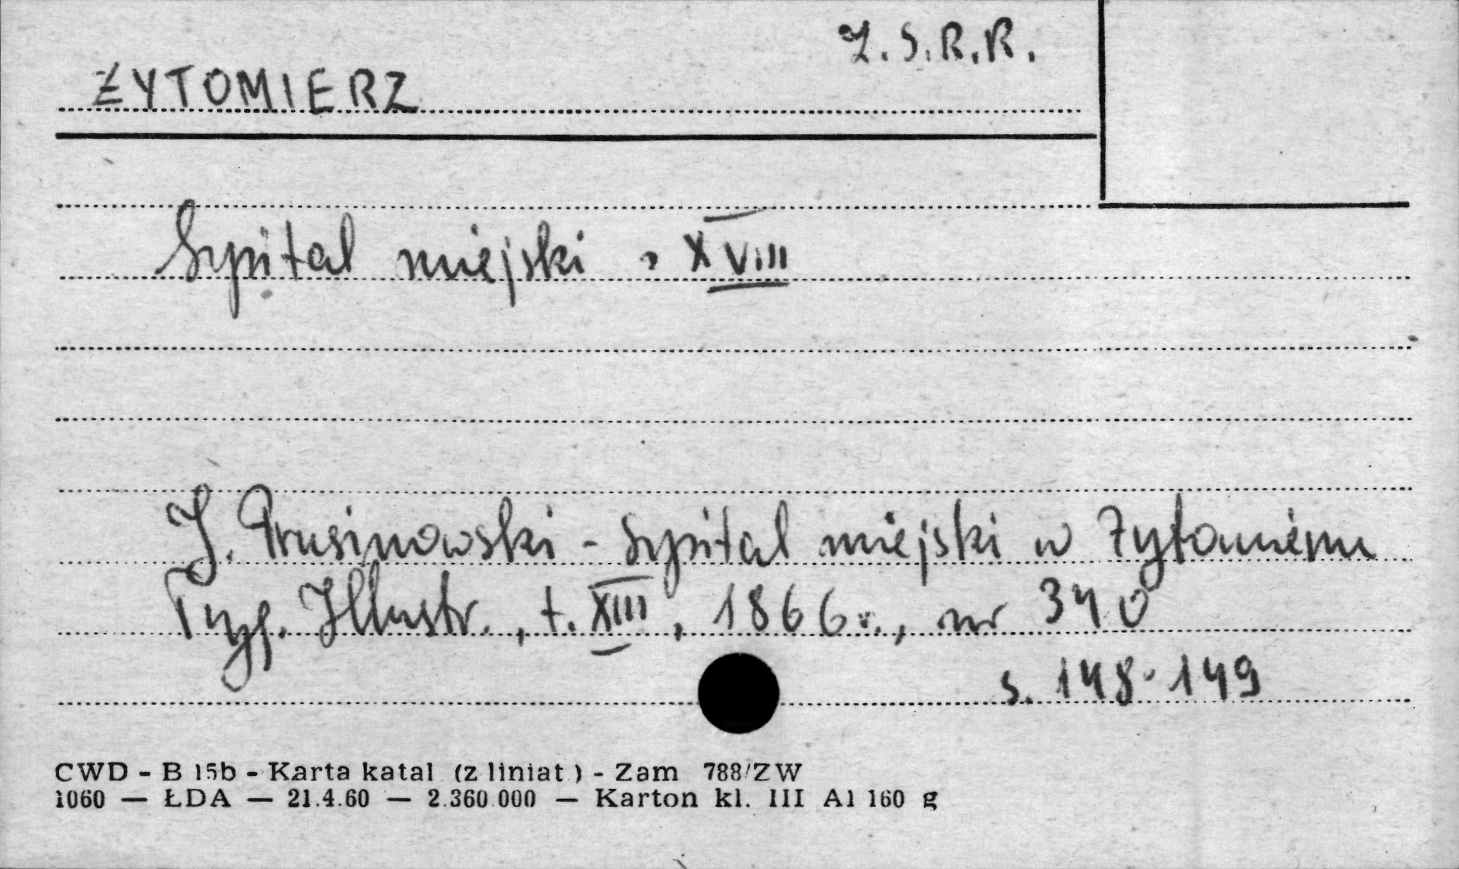 Z.S.R.R.
ŻYTOMIERZ
Szpital miejski, XVIII
J. Prusinowski - Szpital miejski w Żytomierzu
Tyg. Illustr., t. XIII, 1866 r., nr 340
s. 148-149
CWD - B 15b - Karta katal (z liniat) - Zam 788/ZW
1060 — ŁDA — 21.4.60 — 2.360.000 — Karton kl. III A1 160 g